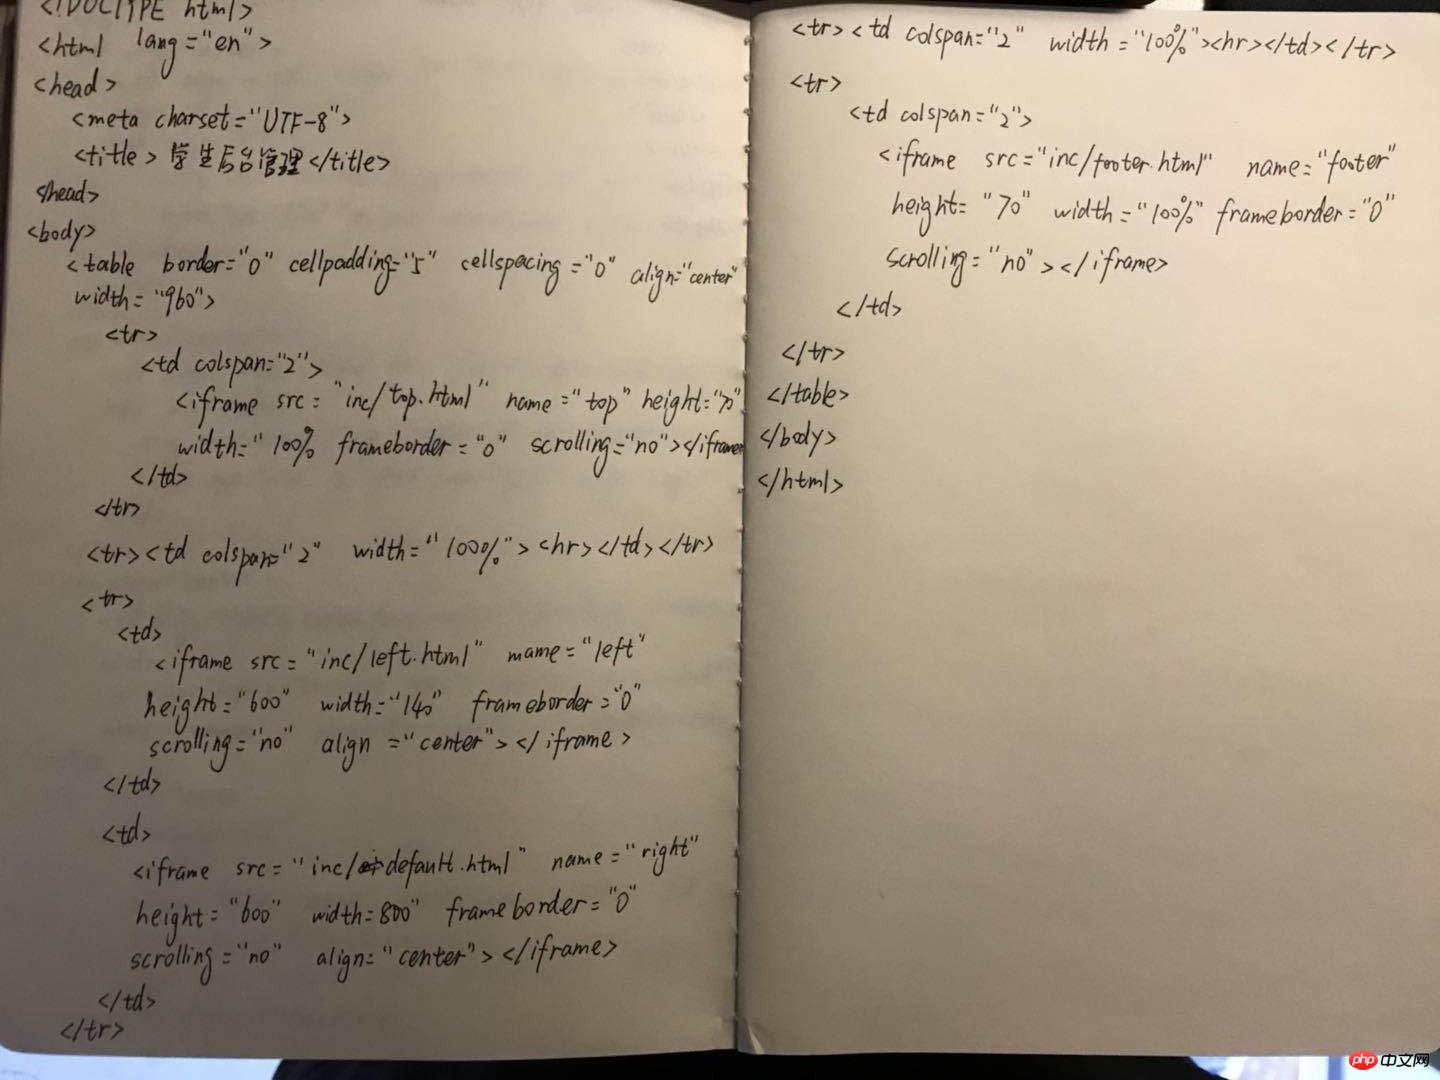 <!DOCTYPE html>
<html lang="en">
<head>
<meta charset="UTF-8">
<title>学生后台管理</title>
</head>
<body>
<table border="0" cellpadding="5" cellspacing="0" align="center"
width="960">
<tr>
<td colspan="2">
<iframe src="inc/top.html" name="top" height="70"
width="100% frameborder="0" scrolling="no"></iframe>
</td>
</tr>
<tr><td colspan="2" width="100%"><hr></td></tr>
<tr>
<td>
<iframe src="inc/left.html" mame="left"
height="600" width="140" frameborder="0"
scrolling="no" align="center"></iframe>
</td>
<td>
<iframe src="inc/default.html" name="right"
height="600" width=800" frameborder="0"
scrolling="no" align="center"></iframe>
</td>
</tr>
<tr><td colspan="2" width="100%"><hr></td></tr>
<tr>
<td colspan="2">
<iframe src="inc/footer.html" name="footer"
height="70" width="100%" frameborder="0"
scrolling="no"></iframe>
</td>
</tr>
</table>
</body>
</html>
php 中文网